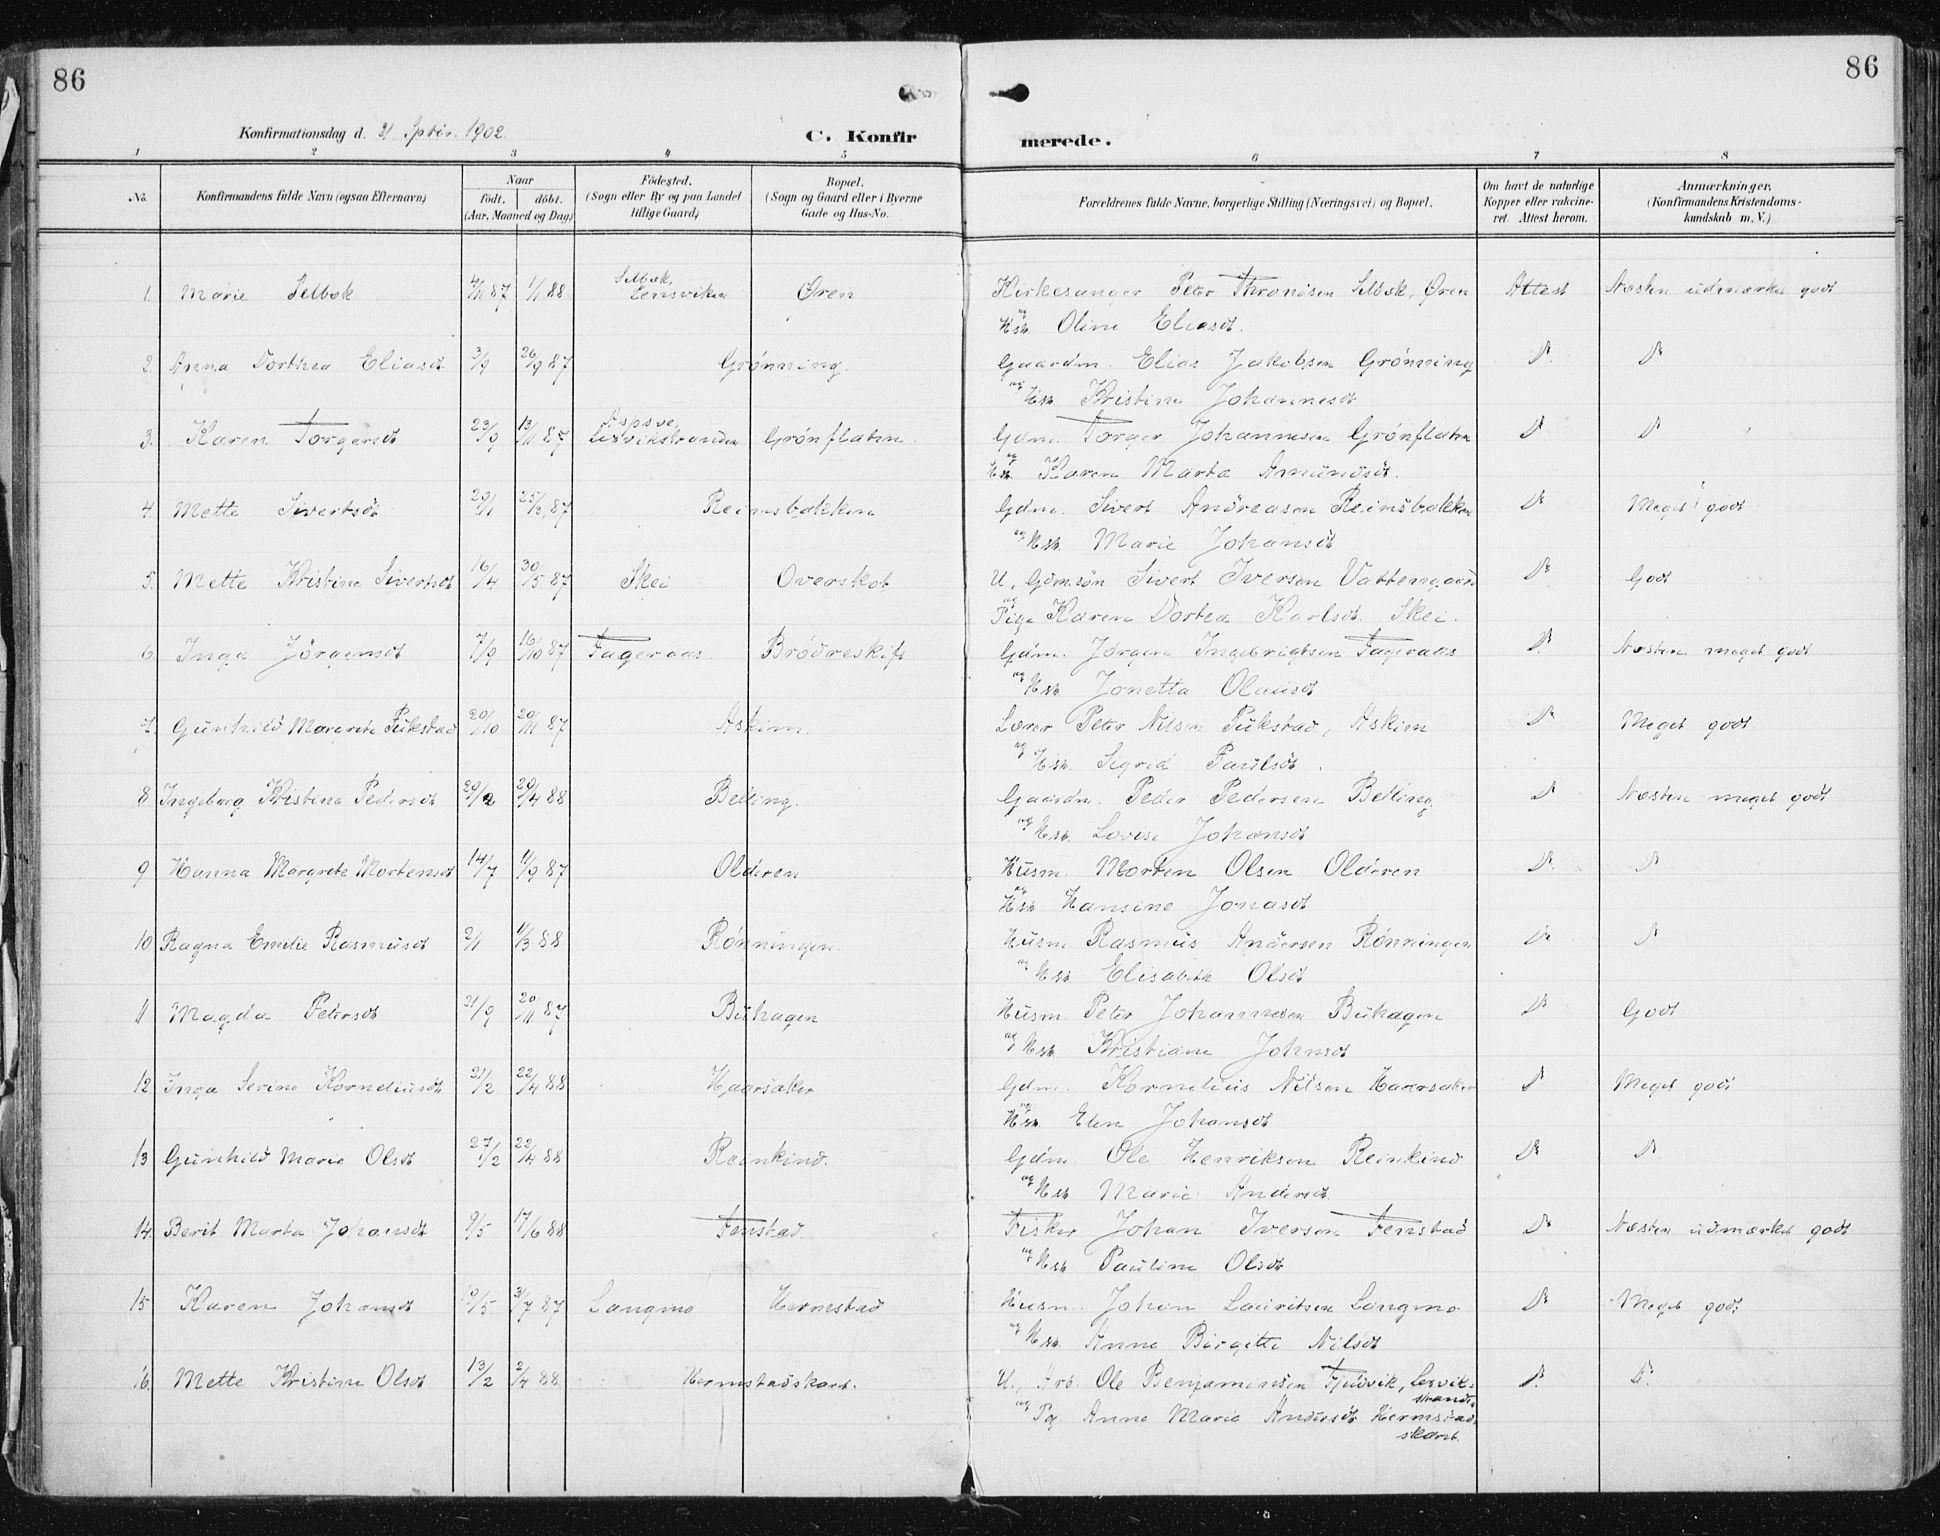 86
86
Konfirmationsdag d. 21 Septbr. 1902.
C. Konfirmerede.
1 2 3 4 5 6 7 8
No.
Konfirmandens fulde Navn (ogsaa Efternavn)
Naar
födt. döbt.
(Aar, Maaned og Dag)
Födested.
(Sogn eller By og paa Landet
tillige Gaard)
Bopæl.
(Sogn og Gaard eller i Byerne
Gade og Hus-No.
Forældrenes fulde Navne, borgerlige Stilling (Næringsvei) og Bopæl.
Om havt de naturlige
Kopper eller vakcine-
ret. Attest herom.
Anmærkninger.
(Konfirmandens Kristendoms-
kundskab m. V.)
1. Marie Selbæk 4/11 87 1/1 88 Selbæk, Lensviken Øren Kirkesanger Peter Thronsen Selbæk, Øren Attest Næsten udmærket godt
og Hst. Oline Eliasdt.
2. Anna Dorthea Eliasdt 3/9 26/9 87 Grønning. Gaardm. Elias Jakobsen Grønning Do Do
og Hst. Kristine Johannesdt
3. Karen Torgersdt 23/9 13/11 87 Lexvikstranden Grønflaten. Gdm. Torger Johannesen Grønflaten Do Do
og Hst. Karen Marta Amundsdt.
4. Mette Sivertsdt 20/1 25/3 87 Reinsbakken Gdm. Sivert Andreasen Reinsbakken Do Meget godt
og Hst. Marie Johansdt
5. Mette Kristine Sivertsdt 16/4 30/5 87 Skei Overskot U. Gdmsøn Sivert Iversen Vattengaard Do Godt
og Pige Karen Dortea Karlsdt. Skei.
6. Inga Jörgensdt 7/9 16/10 87 Fageraas Brödreskift Gdm. Jørgen Ingebrigtsen Fageraas Do. Næsten meget godt
og Hst. Jonetta Olausdt
7. Gunhild Margrete Pukstad 20/10 20/11 87 Askim. Lærer Peter Nilsen Pukstad, Askim Do Meget godt
og Hst. Sigrid Paulsdt.
8 Ingeborg Kristine Pedersdt 29/2 20/4 88 Belling. Gaardm. Peder Pedersen Belling Do Næsten meget godt
og Hst. Lovise Johansdt
9 Hanna Margrete Mortensdt 14/7 11/9 87 Olderen Husm. Morten Olsen Olderen Do. Do
og Hst Hansine Jonasdt
10 Ragna Emilie Rasmusdt 2/1 11/3 88 Rønningen. Husm. Rasmus Andersen Rønningen Do Do
og Hst Elisabeth Olsdt
11 Magda Petersdt 21/9 20/11 87 Buhagen Husm. Peter Johannesen Buhagen Do Godt
og Hst. Kristiane Johnsdt
12 Inga Serine Korneliusdt 21/2 22/4 88 Haarsaker Gdm. Kornelius Nilsen Haarsaker Do Meget godt
og Hst. Elen Johansdt
13 Gunhild Marie Olsdt 27/2 22/4 88 Reinkind. Gdm. Ole Henriksen Reinkind Do Do
og Hst Marie Andersdt
14. Berit Marta Johansdt 9/5 17/6 88 Fenstad. Fisker Johan Iversen Fenstad Do Næsten udmærket godt
og Hst. Pauline Olsdt
15 Karen Johansdt 10/5 3/7 87 Langmo Hermstad Husm. Johan Lauritsen Langmo Do Meget godt
og Hst. Anne Birgitte Nilsdt
16. Mette Kristine Olsdt 13/2 2/4 88 Hermstadskard. U. Arb. Ole Benjaminsen Fjeldvik, Lexvikstranden Do. Do.
og Pg. Anne Marie Andersdt Hermstadskaret.